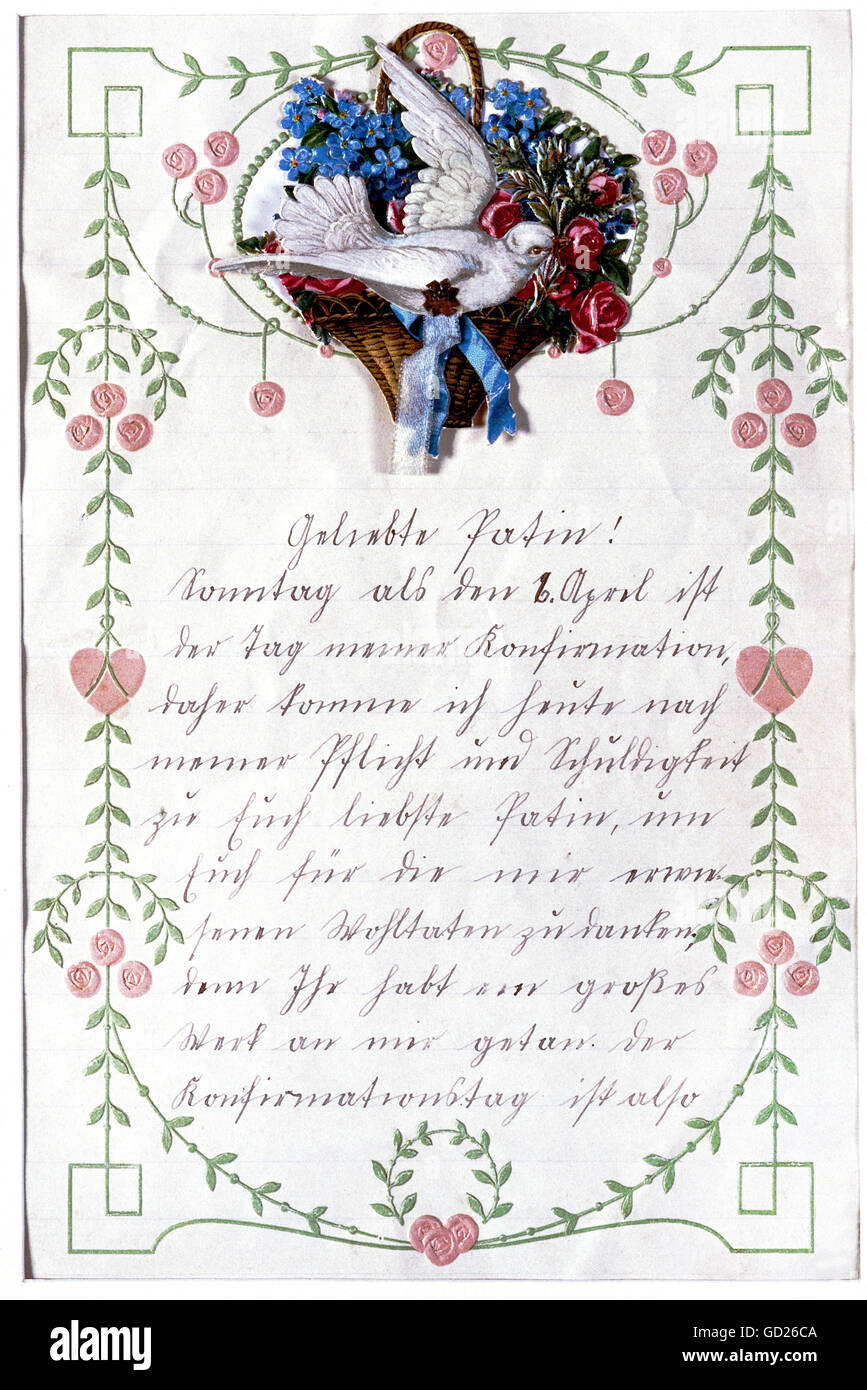 Geliebte Patin!
Sonntag als den 1. April ist
der Tag meiner Konfirmation,
daher komme ich heute nach
meiner Pflicht und Schuldigkeit
zu Euch liebste Patin, um
Euch für die mir erwie-
senen Wohltaten zu danken,
denn Ihr habt ein großes
Werk an mir getan. Der
Konfirmationstag ist also
alamy
Image ID: GD26CA
www.alamy.com